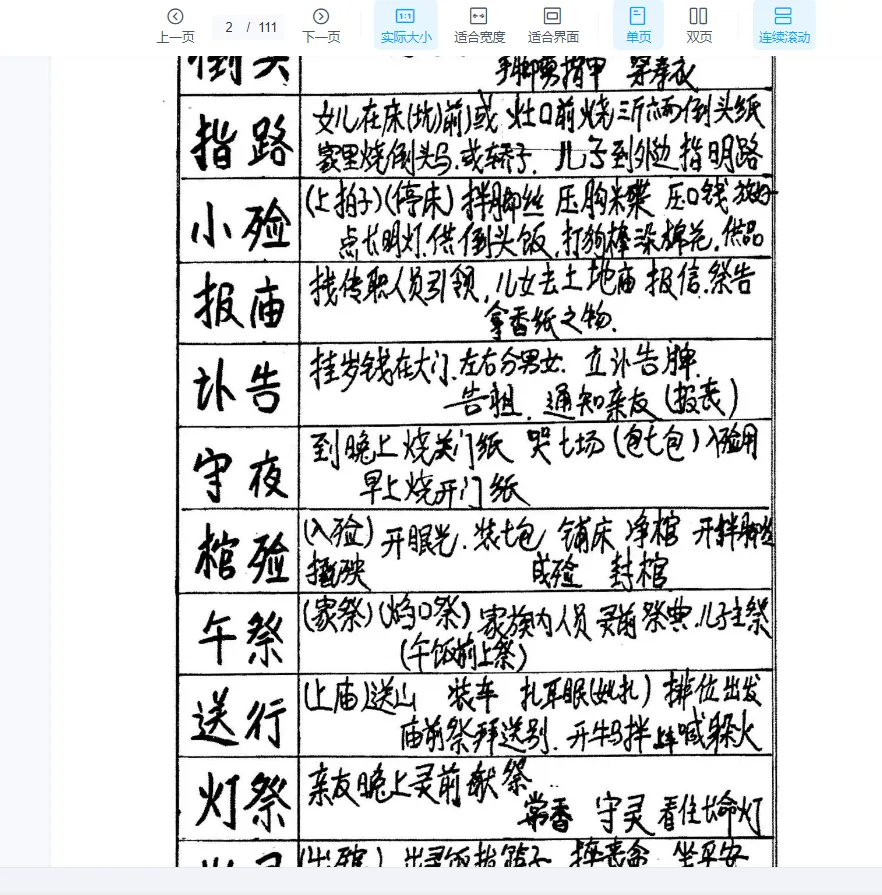 上一页 2 / 111 下一页 实际大小 适合宽度 适合界面 单页 双页 连续滚动
倒头
手脚剪指甲 穿寿衣
指路
女儿在床(炕)前)或 灶口前烧三斤六两倒头纸
家里烧倒头马.或轿子. 儿子到外边指明路
小殓
(上拍子)(停床) 拌脚丝 压胸米 压口钱 放
点长明灯.供倒头饭,打狗棒.染棉花.供品
报庙
找传职人员引领,儿女去土地庙报信.祭告
拿香纸之物.
讣告
挂岁钱在大门.左右分男女. 立讣告牌.
告祖. 通知亲友(报丧)
守夜
到晚上烧关门纸 哭七场(包七包)入殓用
早上烧开门纸
棺殓
(入殓) 开眼光.装七包 铺床 净棺 开拌脚丝
殃 成殓 封棺
午祭
(家祭)(焰口祭) 家族内人员灵前祭典.儿子主祭
(午饭前上祭)
送行
(上庙)送山 装车 扎耳眼(她扎) 排位出发
庙前祭拜送别. 开牛马拌 喊躲火
灯祭
亲友晚上灵前献祭
常香 守灵 看住长命灯
(出殡) 出灵饭 摔丧盆 坐平安